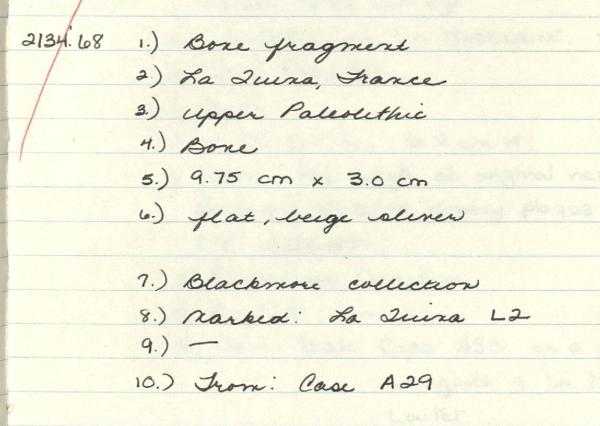 2134.68 1.) Bone fragment
2.) La Quina, France
3.) Upper Paleolithic
4.) Bone
5.) 9.75 cm x 3.0 cm
6.) flat, beige sliver
7.) Blackmore collection
8.) Marked: La Quina L2
9.) —
10.) From: Case A29